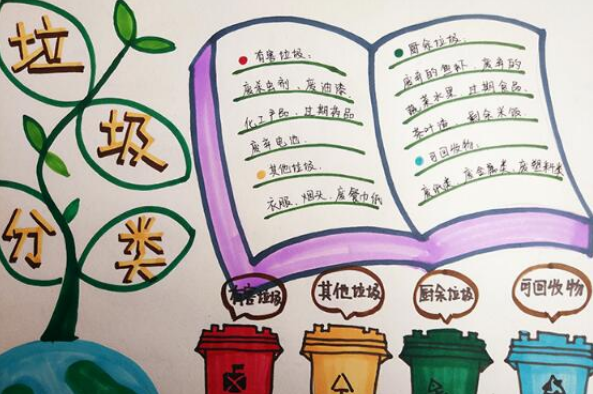 垃
圾
分
类
有害垃圾：
废杀虫剂、废油漆、
化工产品、过期药品
废弃电池
其他垃圾：
衣服、烟头、废餐巾纸
厨余垃圾：
废弃的
蔬菜水果 过期食品
茶叶渣 剩余米饭
可回收物：
废纸类、废金属类、废塑料类
有害垃圾
其他垃圾
厨余垃圾
可回收物